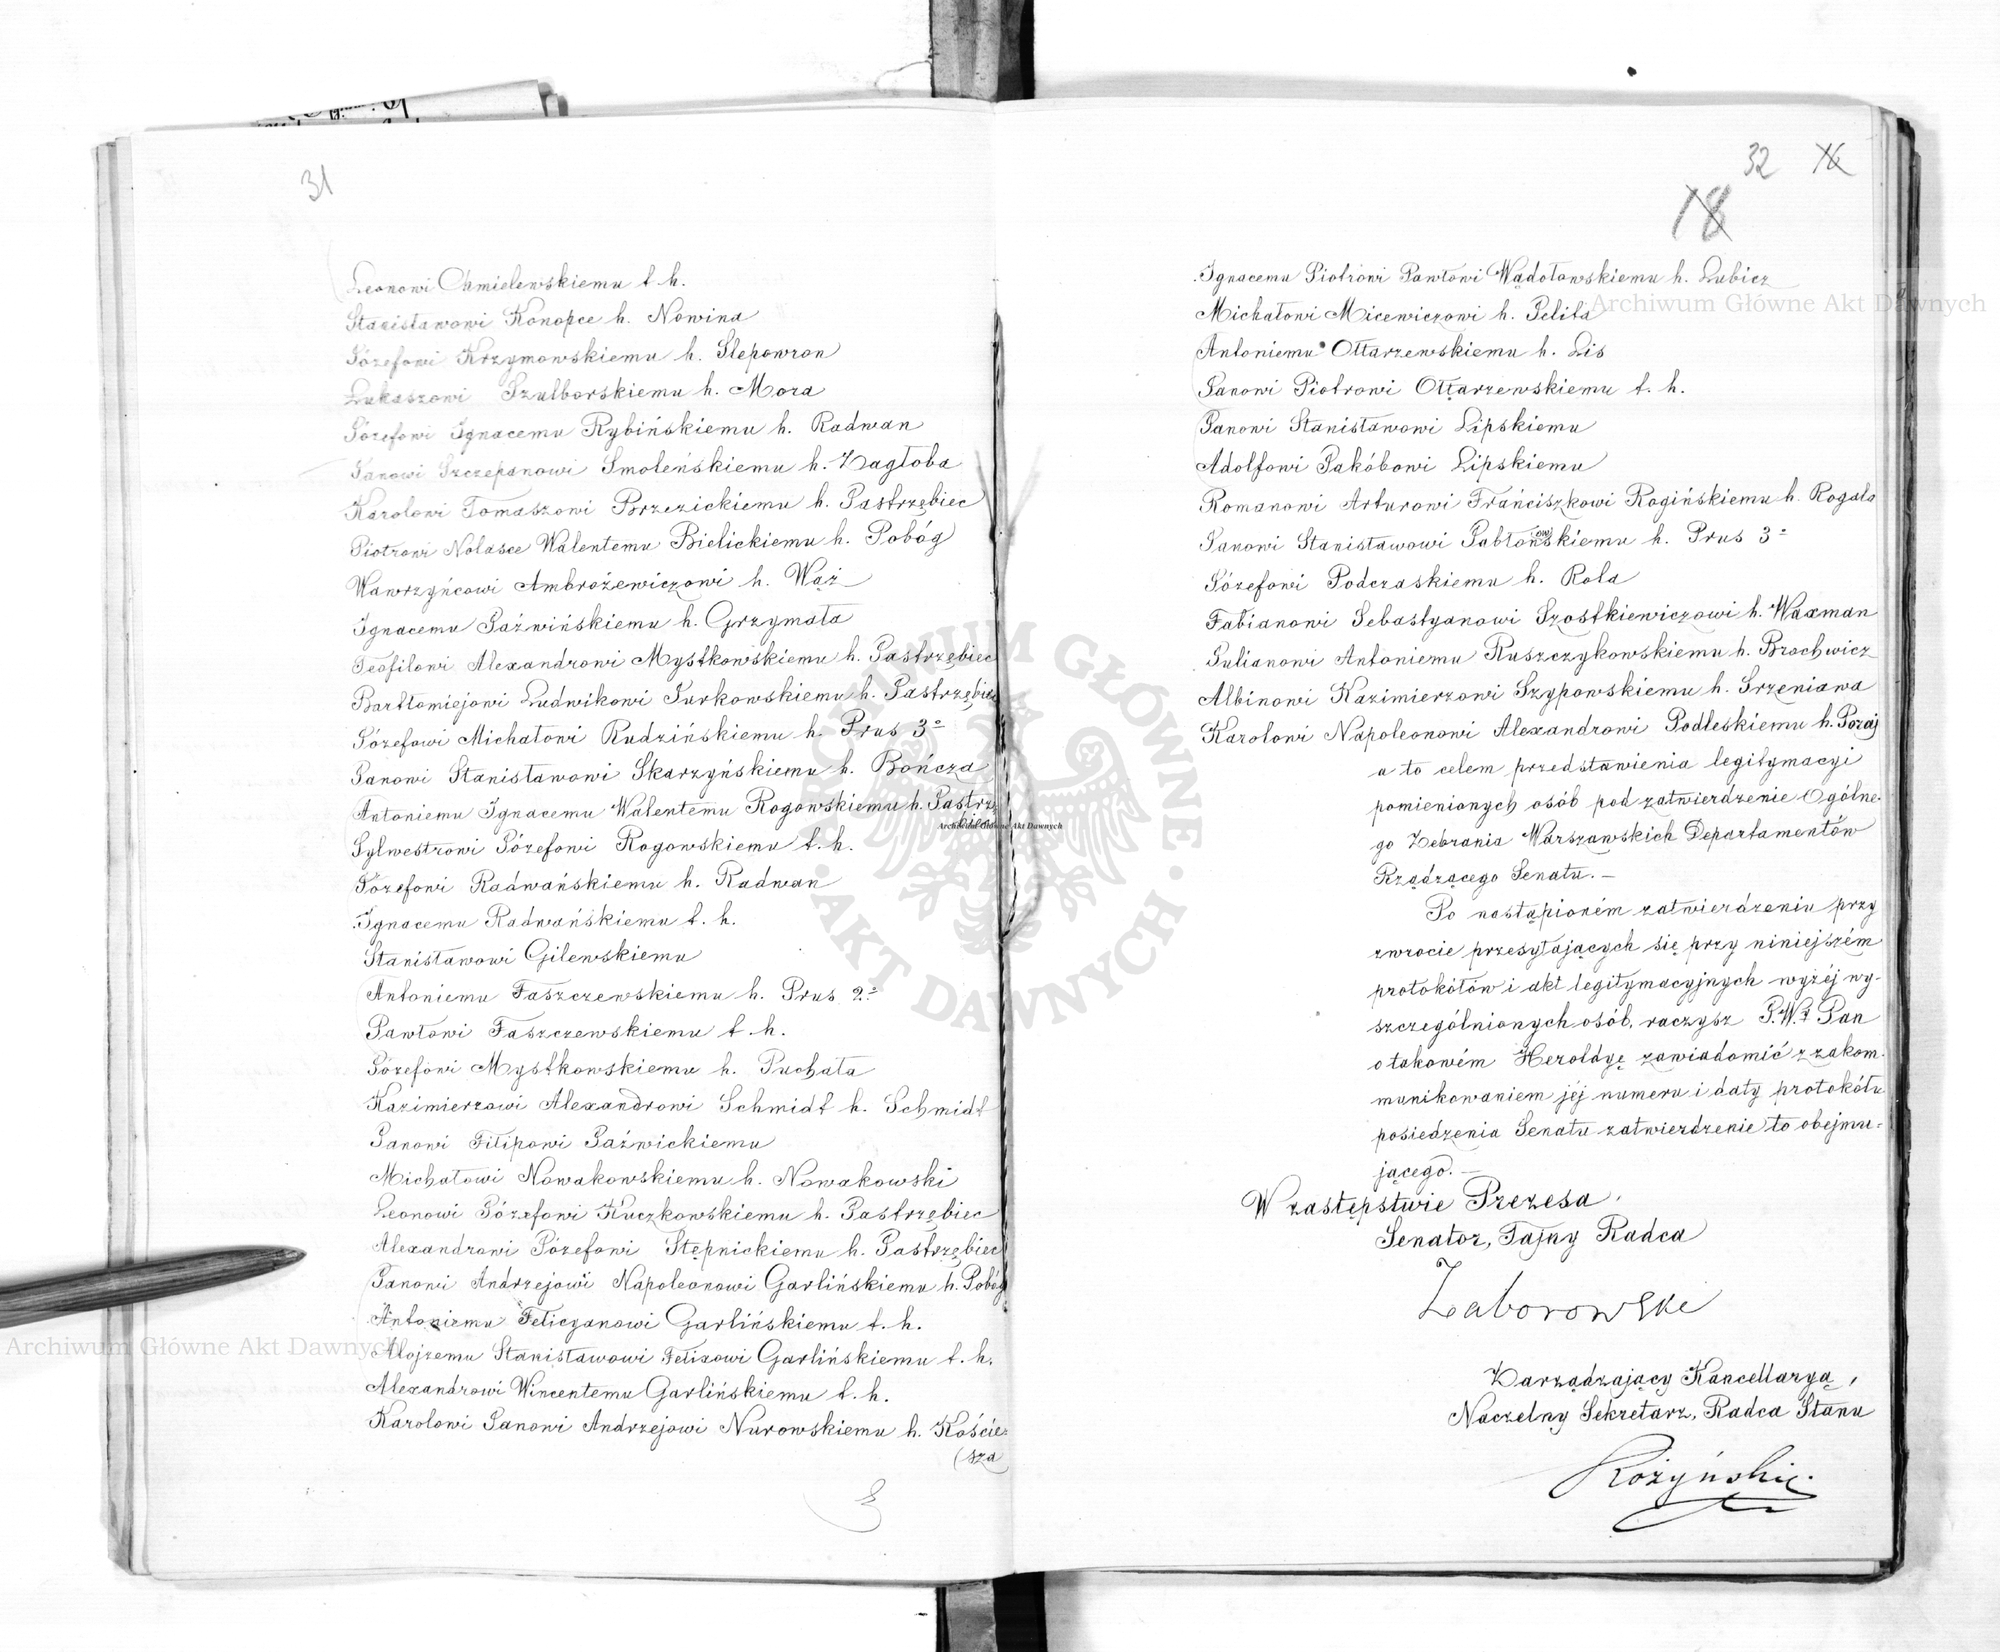 31
Leonowi Chmielewskiemu t. h.
Stanisławowi Konopce h. Nowina
Józefowi Krzymowskiemu h. Ślepowron
Łukaszowi Szulborskiemu h. Mora
Józefowi Ignacemu Rybińskiemu h. Radwan
Janowi Szczepanowi Smoleńskiemu h. Zagłoba
Karolowi Tomaszowi Brzezickiemu h. Jastrzębiec
Piotrowi Nolasce Walentemu Bielickiemu h. Pobóg
Wawrzyńcowi Ambrożewiczowi h. Wąż
Ignacemu Jaźwińskiemu h. Grzymała
Teofilowi Alexandrowi Mystkowskiemu h. Jastrzębiec
Bartłomiejowi Ludwikowi Turkowskiemu h. Jastrzębiec
Józefowi Michałowi Rudzińskiemu h. Prus 3º
Janowi Stanisławowi Skarzyńskiemu h. Bończa
Antoniemu Ignacemu Walentemu Rogowskiemu h. Jastrzę
biec
Sylwestrowi Józefowi Rogowskiemu t. h.
Józefowi Radwańskiemu h. Radwan
Ignacemu Radwańskiemu t. h.
Stanisławowi Gilewskiemu
Antoniemu Faszczewskiemu h. Prus 2º
Pawłowi Faszczewskiemu t. h.
Józefowi Mystkowskiemu h. Puchała
Kazimierzowi Alexandrowi Schmidt h. Schmidt
Janowi Filipowi Jaźwickiemu
Michałowi Nowakowskiemu h. Nowakowski
Leonowi Józefowi Kuczkowskiemu h. Jastrzębiec
Alexandrowi Józefowi Stępnickiemu h. Jastrzębiec
Janowi Andrzejowi Napoleonowi Garlińskiemu h. Pobóg
Antoniemu Felicyanowi Garlińskiemu t. h.
Alojzemu Stanisławowi Felixowi Garlińskiemu t. h.
Alexandrowi Wincentemu Garlińskiemu t. h.
Karolowi Janowi Andrzejowi Nurowskiemu h. Koście-
(sza
32 16
18
Ignacemu Piotrowi Pawłowi Wądołowskiemu h. Lubicz
Michałowi Micewiczowi h. Pelita
Antoniemu Ołtarzewskiemu h. Lis
Janowi Piotrowi Ołtarzewskiemu t. h.
Janowi Stanisławowi Lipskiemu
Adolfowi Jakóbowi Lipskiemu
Romanowi Arturowi Franciszkowi Rogińskiemu h. Rogala
Janowi Stanisławowi Jabłonowskiemu h. Prus 3º
Józefowi Podczaskiemu h. Rola
Fabianowi Sebastyanowi Szostkiewiczowi h. Waxman
Julianowi Antoniemu Ruszczykowskiemu h. Brochwicz
Albinowi Kazimierzowi Szypowskiemu h. Srzeniawa
Karolowi Napoleonowi Alexandrowi Podleskiemu h. Poraj
a to celem przedstawienia legitymacyi
pomienionych osób pod zatwierdzenie Ogólne-
go Zebrania Warszawskich Departamentów
Rządzącego Senatu. —
Po nastąpioném zatwierdzeniu przy
zwrocie przesyłających się przy niniejszém
protokółów i akt legitymacyjnych wyżéj wy-
szczególnionych osób, raczysz J.W.y Pan
o takowém Heroldyę zawiadomić z zakom-
munikowaniem jéj numeru i daty protokółu
posiedzenia Senatu zatwierdzenie to obejmu-
jącego. —
W zastępstwie Prezesa,
Senator, Tajny Radca
Zaborowski
Zarządzający Kancellaryą,
Naczelny Sekretarz, Radca Stanu
Różyński
Archiwum Główne Akt Dawnych
Archiwum Główne Akt Dawnych
Archiwum Główne Akt Dawnych
ARCHIWUM GŁÓWNE · AKT DAWNYCH ·